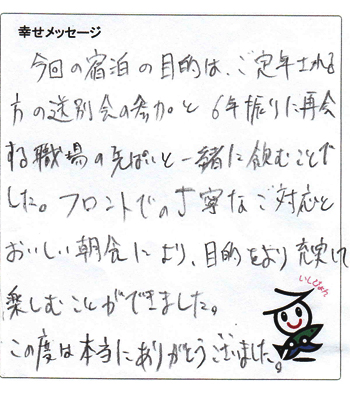 幸せメッセージ
今回の宿泊の目的は、ご定年される
方の送別会の参加と 6年振りに再会
する職場の先ぱいと一緒に飲むことで
した。フロントでの丁寧なご対応と
おいしい朝食により、目的をより充実して
楽しむことができました。
いしぴょん
この度は本当にありがとうございました。